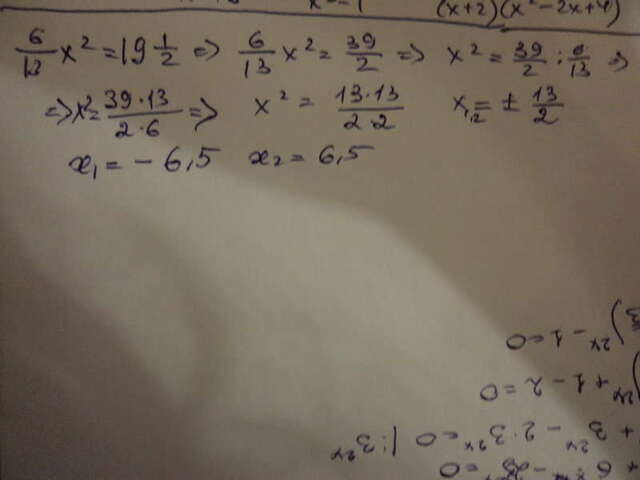 (x+2)(x²-2x+4)
6/13 x² = 19 1/2 => 6/13 x² = 39/2 => x² = 39/2 : 6/13 =>
=> x² = 39·13/2·6 => x² = 13·13/2·2 x₁,₂ = ± 13/2
x₁ = - 6,5 x₂ = 6,5
+ 3²ˣ - 2·3²ˣ = 0 |:3²ˣ
+ 1 - 2 = 0
)²ˣ - 1 = 0